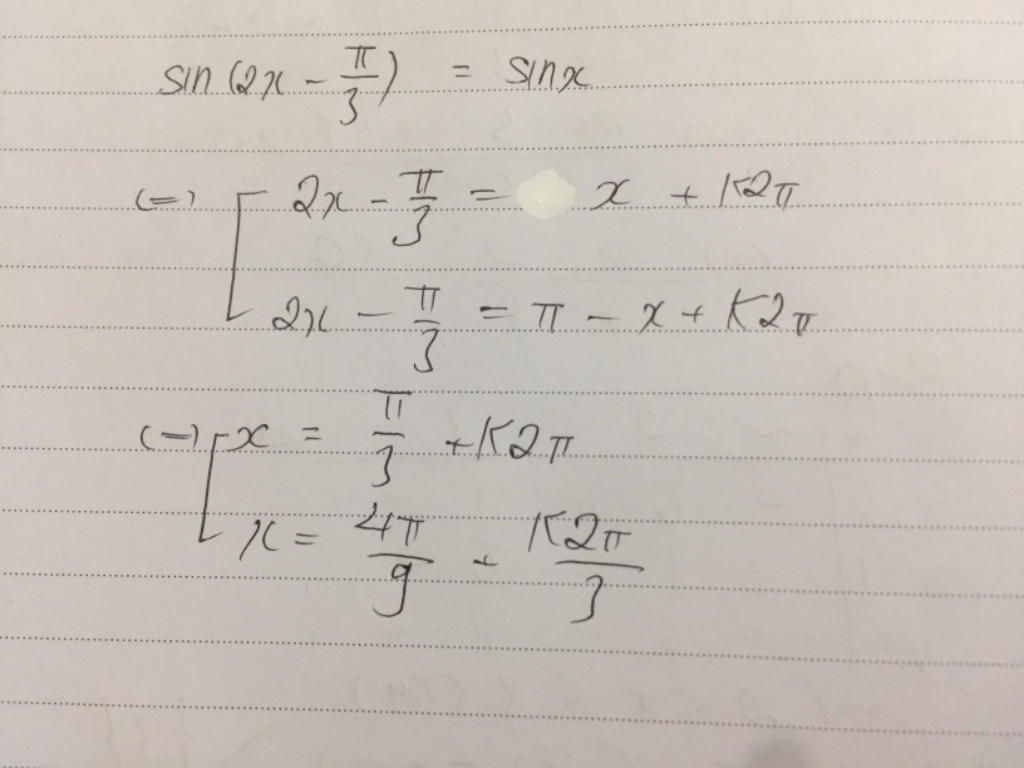 sin (2x - π/3) = sinx
(=) [ 2x - π/3 = x + K2π
2x - π/3 = π - x + K2π
(=) [ x = π/3 + K2π
x = 4π/9 + K2π/3